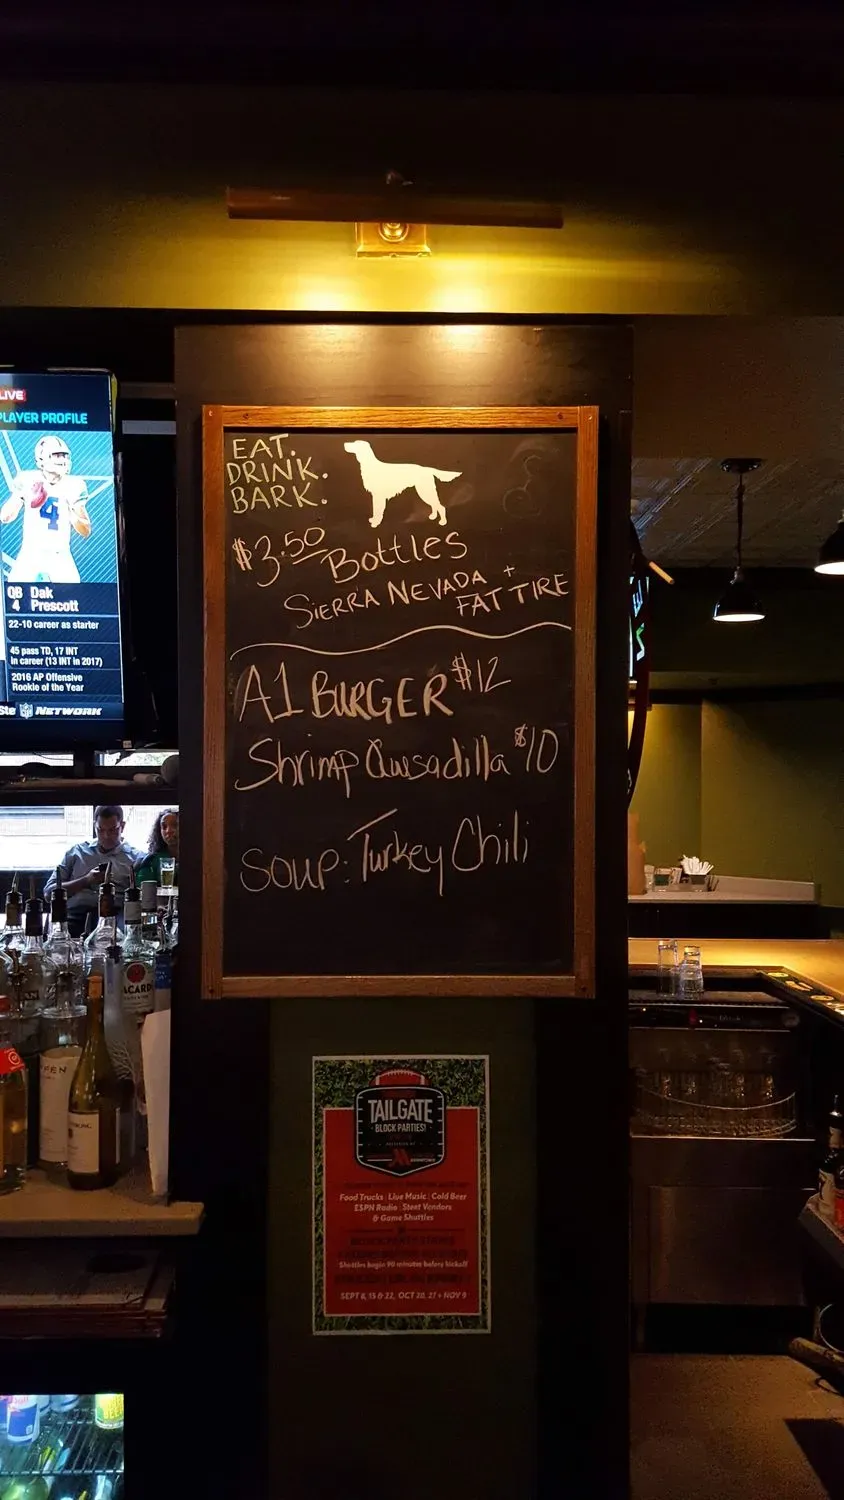 EAT.
DRINK.
BARK.
$3.50 Bottles
SIERRA NEVADA +
FAT TIRE
A1 BURGER $12
Shrimp Quesadilla $10
SOUP: Turkey Chili
LIVE
PLAYER PROFILE
4
QB Dak
4 Prescott
22-10 career as starter
45 pass TD, 17 INT
in career (13 INT in 2017)
2016 AP Offensive
Rookie of the Year
NFL NETWORK
TAILGATE
BLOCK PARTIES!
Food Trucks | Live Music | Cold Beer
ESPN Radio | Steet Vendors
& Game Shuttles
Shuttles begin 90 minutes before kickoff
SEPT 8, 15 & 22, OCT 20, 27 + NOV 9